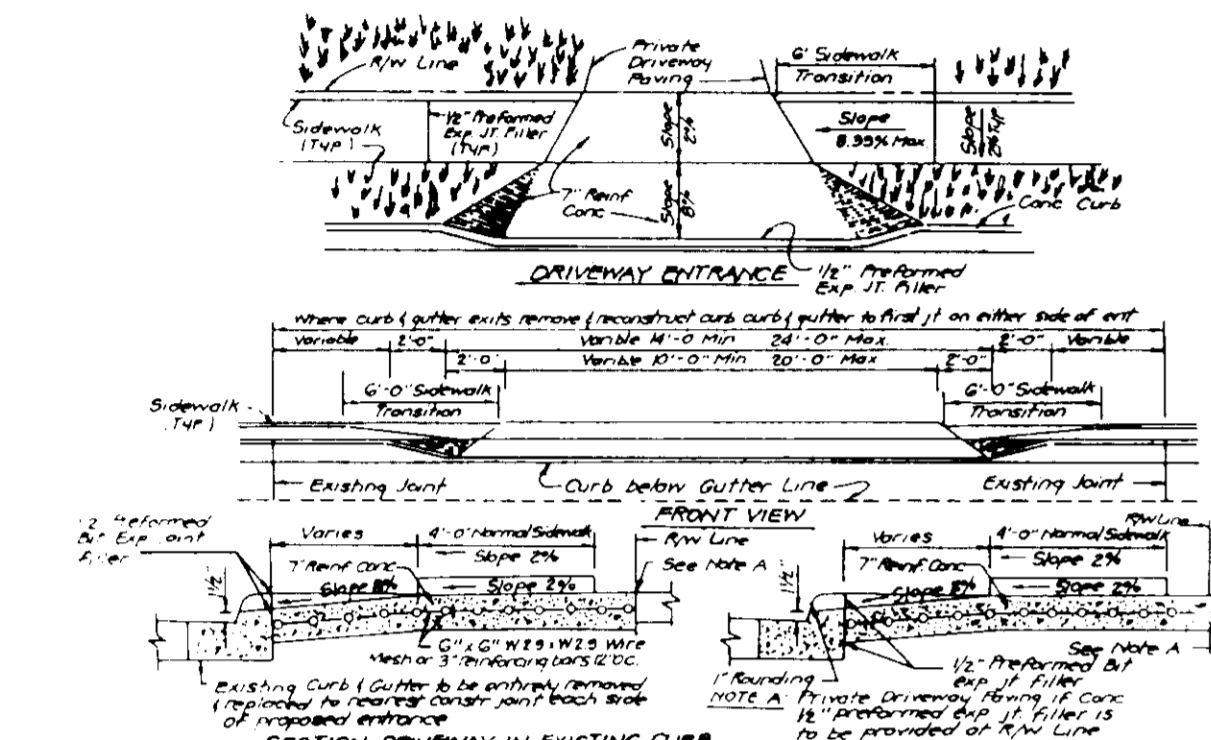 R/W Line
Private
Driveway
Paving
6' Sidewalk
Transition
Sidewalk
(Typ)
1/2" Preformed
Exp. JT. Filler
(Typ)
Slope
2%
Slope
8.33% Max
Slope
2% Typ
7" Reinf
Conc
Slope
8%
Conc Curb
DRIVEWAY ENTRANCE
1/2" Preformed
Exp. JT. Filler
Where curb & gutter exits remove & reconstruct curb curb & gutter to first jt on either side of ent
Variable 2'-0" Varible 14'-0 Min 24'-0" Max. 2'-0" Varible
2'-0" Varible 10'-0" Min 20'-0" Max 2'-0"
6'-0" Sidewalk
Transition
6'-0" Sidewalk
Transition
Sidewalk
(Typ)
Existing Joint
Curb below Gutter Line
Existing Joint
FRONT VIEW
Preformed
Bit Exp Joint
Filler
Varies
4'-0" Normal Sidewalk
Slope 2%
R/W Line
See Note A
7" Reinf Conc
Slope 8%
Slope 2%
1 1/2"
6" x 6" W2.9 x W2.9 Wire
Mesh or 3" reinforcing bars 12" O.C.
Existing Curb & Gutter to be entirely removed
& replaced to nearest constr joint each side
of proposed entrance
SECTION DRIVEWAY IN EXISTING CURB
R/W Line
Varies
4'-0" Normal Sidewalk
Slope 2%
7" Reinf Conc
Slope 8%
Slope 2%
1 1/2"
See Note A
1/2" Preformed Bit
exp jt filler
1" Rounding
NOTE A: Private Driveway Paving if Conc
1/2" preformed exp. jt. filler is
to be provided at R/W Line